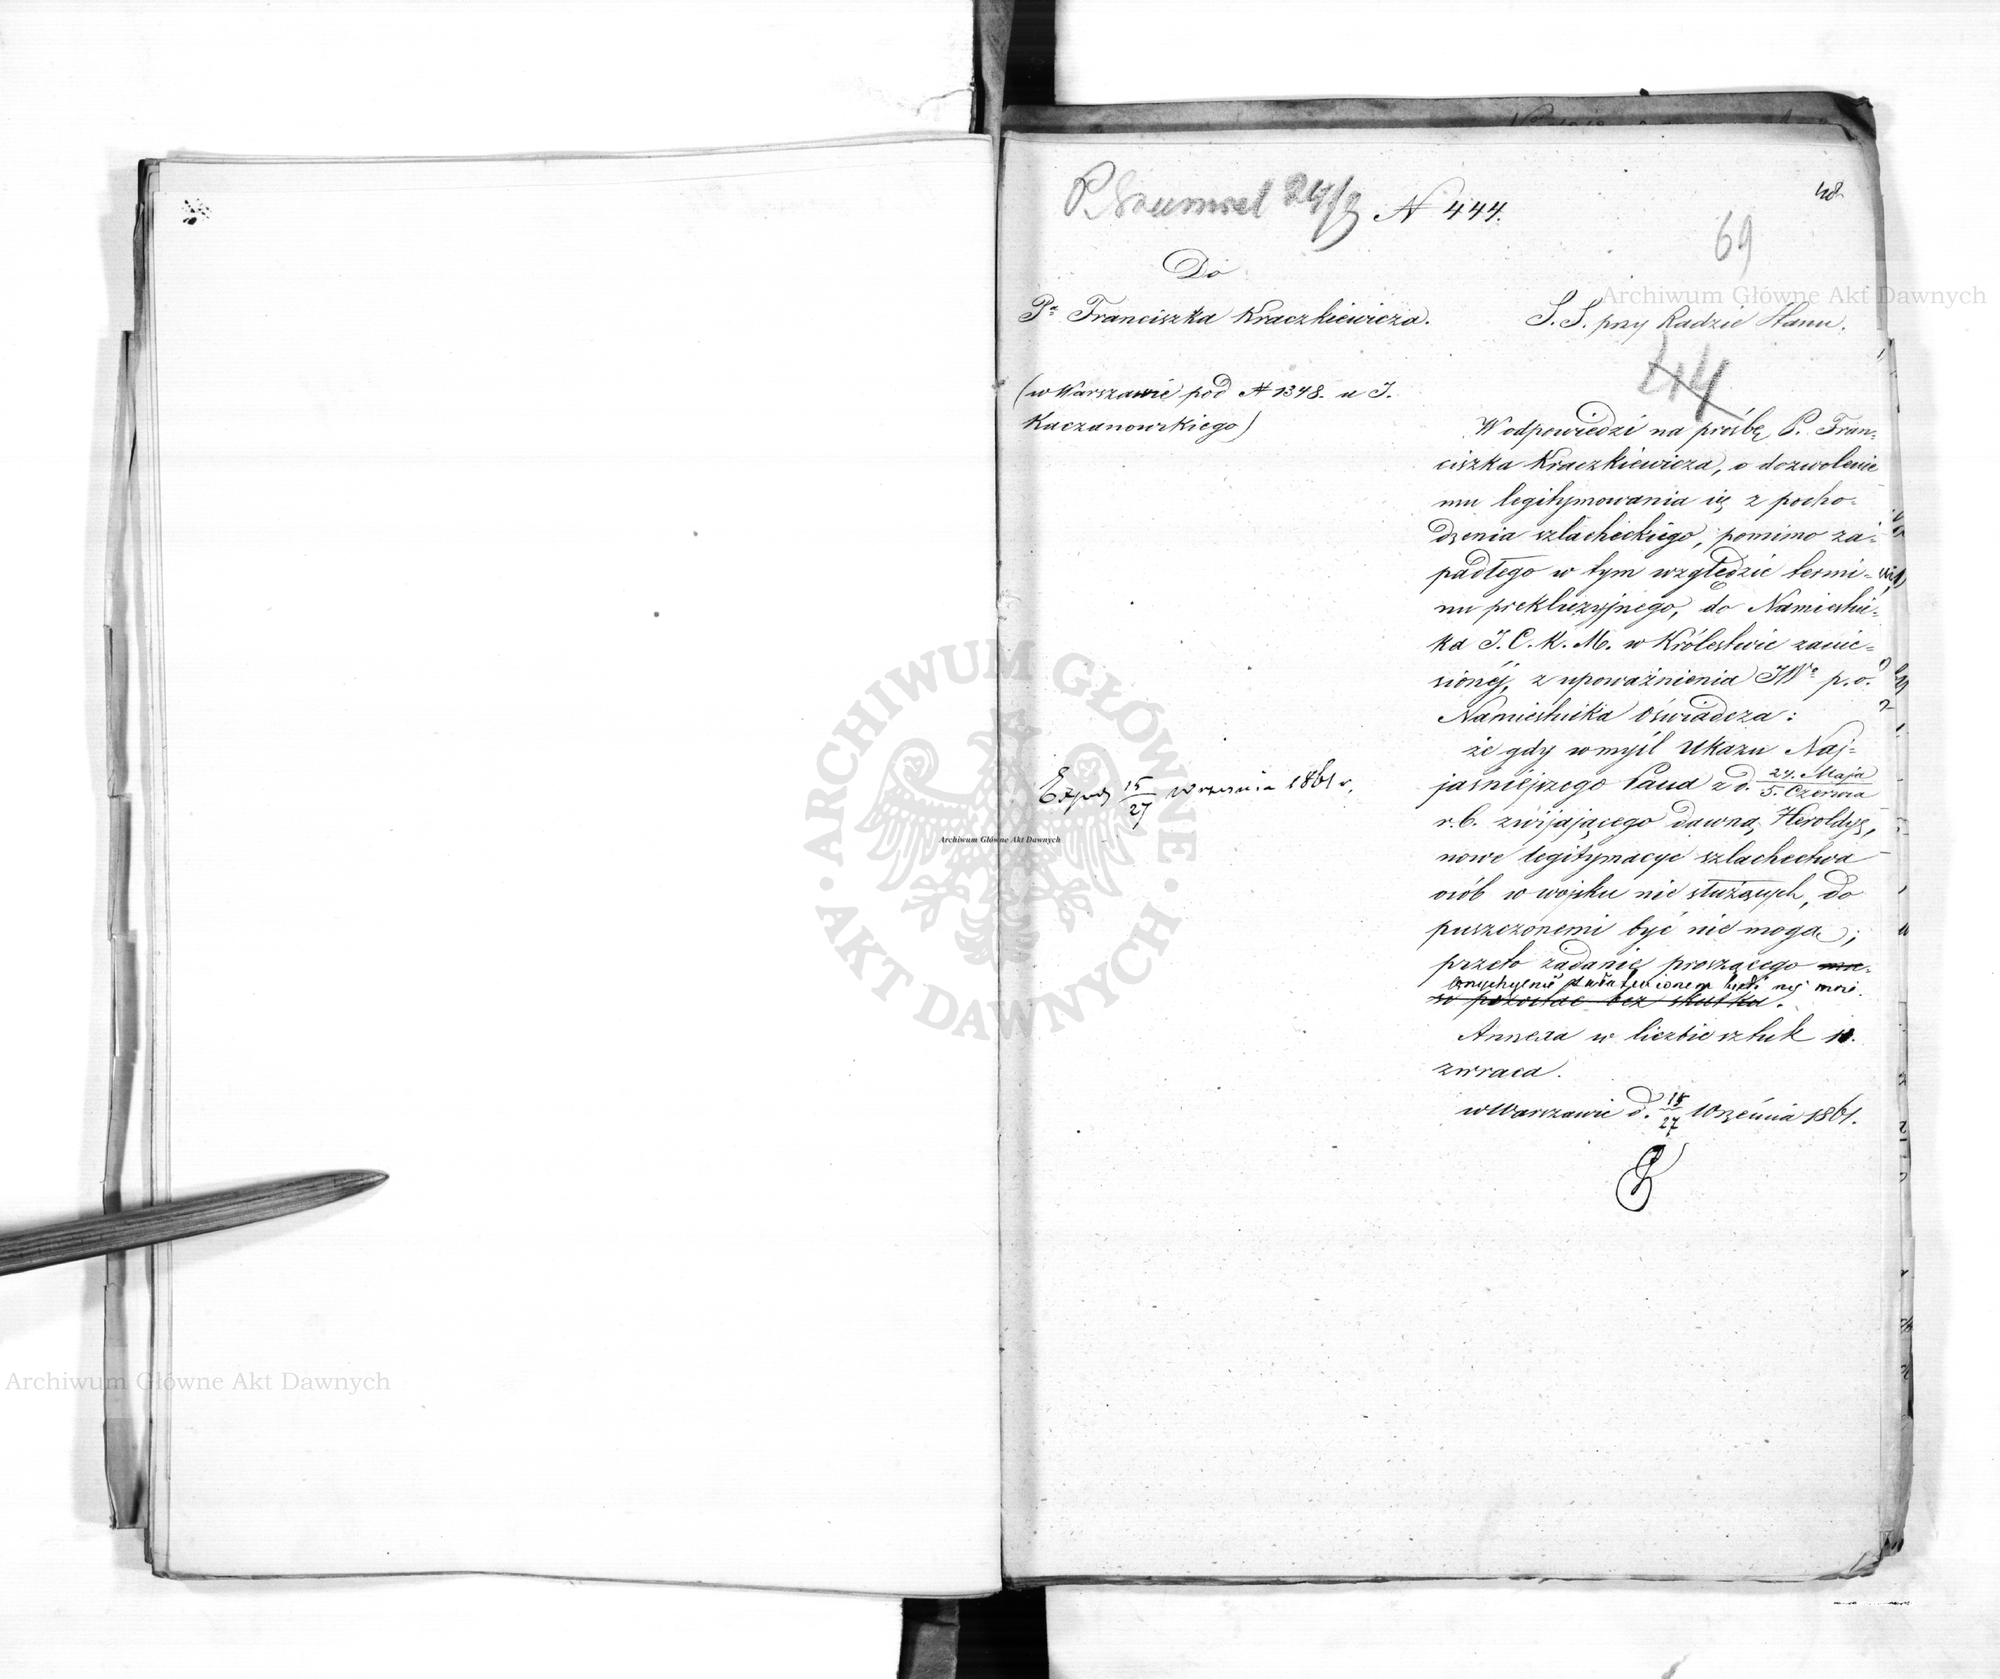 48
N 444.
69
Do
Pa Franciszka Kraczkiewicza.
(w Warszawie pod N 1348. u J.
Kaczanowskiego)
Exped 15/27 Września 1861 r.
S. S. przy Radzie Stanu.
44
W odpowiedzi na prośbę P. Fran-
ciszka Kraczkiewicza, o dozwolenie
mu legitymowania się z pocho-
dzenia szlacheckiego, pomimo za-
padłego w tym względzie termi-
nu prekluzyjnego, do Namiestni-
ka J. C. K. M. w Królestwie zanie-
sionéj, z upoważnienia JWo p. o.
Namiestnika oświadcza:
że gdy w myśl Ukazu Naj-
jaśniejszego Pana z d. 24. Maja/5. Czerwca
r. b. zwijającego dawną Heroldyę,
nowe legitymacye szlachectwa
osób w wojsku nie służących, do
puszczonemi być nie mogą;
przeto żądanie proszącego mu-
przychylnie załatwionem być nie może.
si pozostać bez skutku.
Annexa w liczbie sztuk 10.
zwraca.
w Warszawie d. 15/27 Września 1861.
Archiwum Główne Akt Dawnych
Archiwum Główne Akt Dawnych
Archiwum Główne Akt Dawnych
ARCHIWUM GŁÓWNE
AKT DAWNYCH